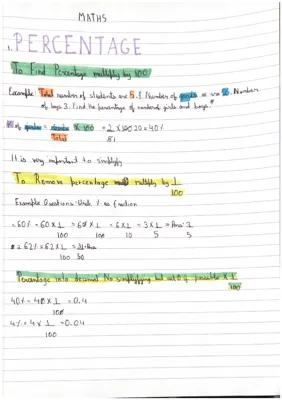 MATHS
1. PERCENTAGE
To Find Percentage multiply by 100
Example: Total number of students are 5. Number of girls are 2. Number
of boys 3. Find the percentage of number of girls and boys.
% of = X 100 = 2 X 100 20 = 40%
Total 51
It is very important to simplify
To Remove percentage multiply by 1
100
Example Questions: Write % as fraction
= 60% = 60 X 1 = 60 X 1 = 6 X 1 = 3 X 1 = Ans: 3
100 100 10 5 5
2 = 62% = 62 X 1 = 31 Ans
100 50
Percentage into decimal No simplifying but cut 0 if possible X 1
100
40% = 40 X 1 = 0.4
100
4% = 4 X 1 = 0.04
100